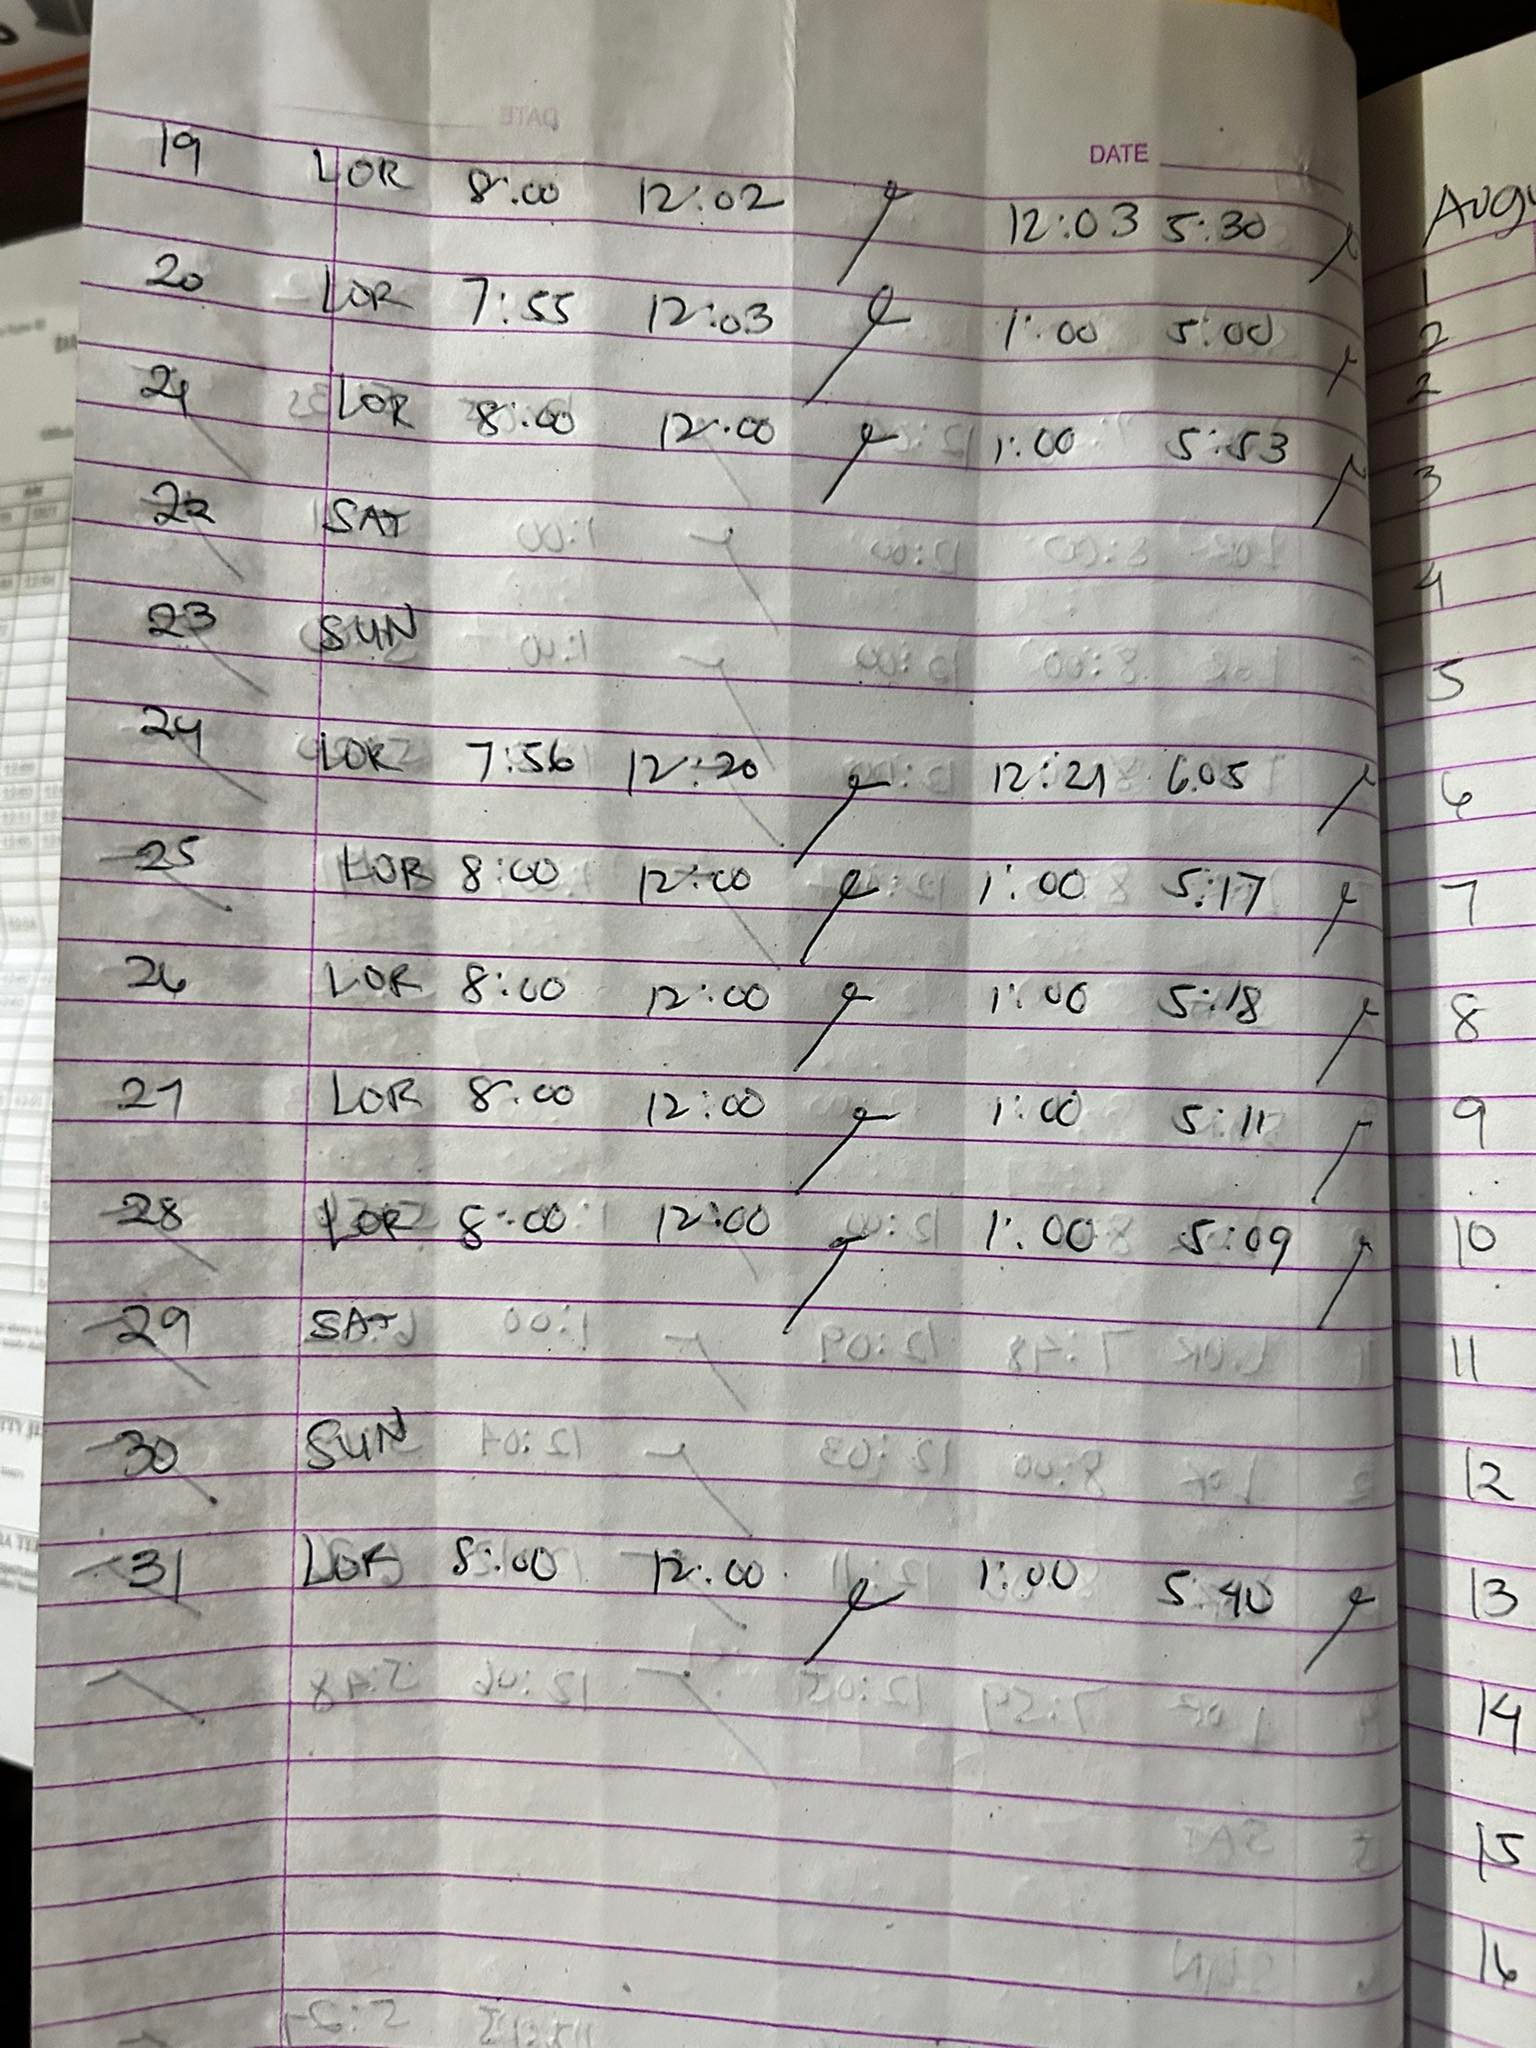 DATE
19 LOR 8:00 12:02 12:03 5:30
20 LOR 7:55 12:03 1:00 5:00
21 LOR 8:00 12:00 1:00 5:53
22 SAT
23 SUN
24 LOR 7:56 12:20 12:21 6:05
25 LOR 8:00 12:00 1:00 5:17
26 LOR 8:00 12:00 1:00 5:18
27 LOR 8:00 12:00 1:00 5:11
28 LOR 8:00 12:00 1:00 5:09
29 SAT
30 SUN
31 LOR 8:00 12:00 1:00 5:40
1
2
2
3
4
5
6
7
8
9
10
11
12
13
14
15
16